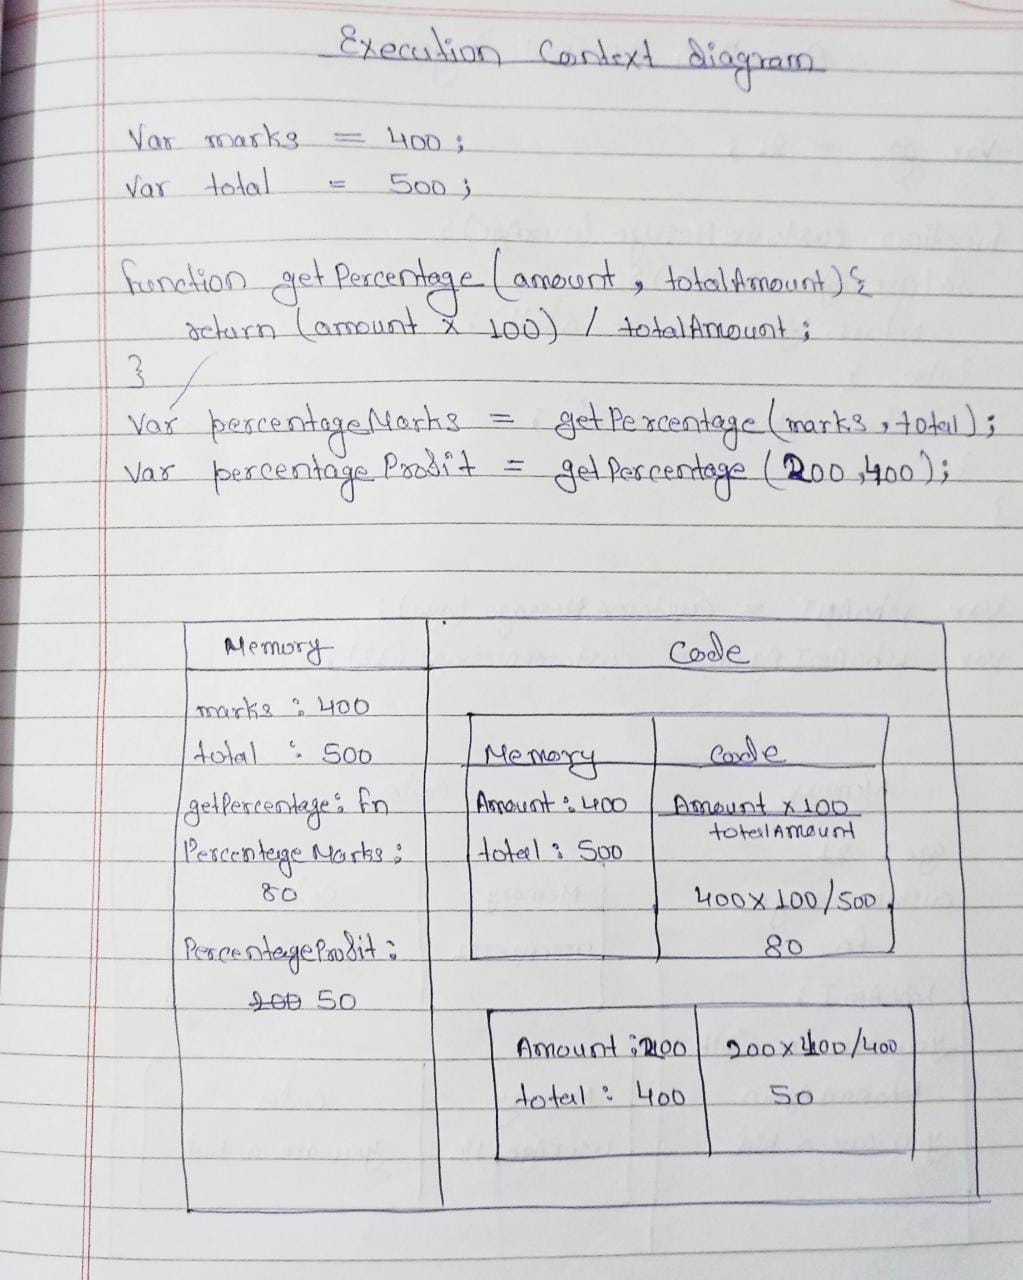 Execution Context diagram
Var marks = 400 ;
Var total = 500 ;
function getPercentage (amount , totalAmount) {
return (amount x 100) / totalAmount ;
}
Var percentageMarks = getPercentage (marks , total) ;
Var percentage Profit = getPercentage (200 , 400) ;
Memory Code
marks : 400
total : 500
getPercentage : fn
Percentage Marks :
80
PercentageProfit :
200 50
Memory Code
Amount : 400 Amount x 100
total : 500 totalAmount
400 x 100 / 500
80
Amount : 200 200 x 100 / 400
total : 400 50